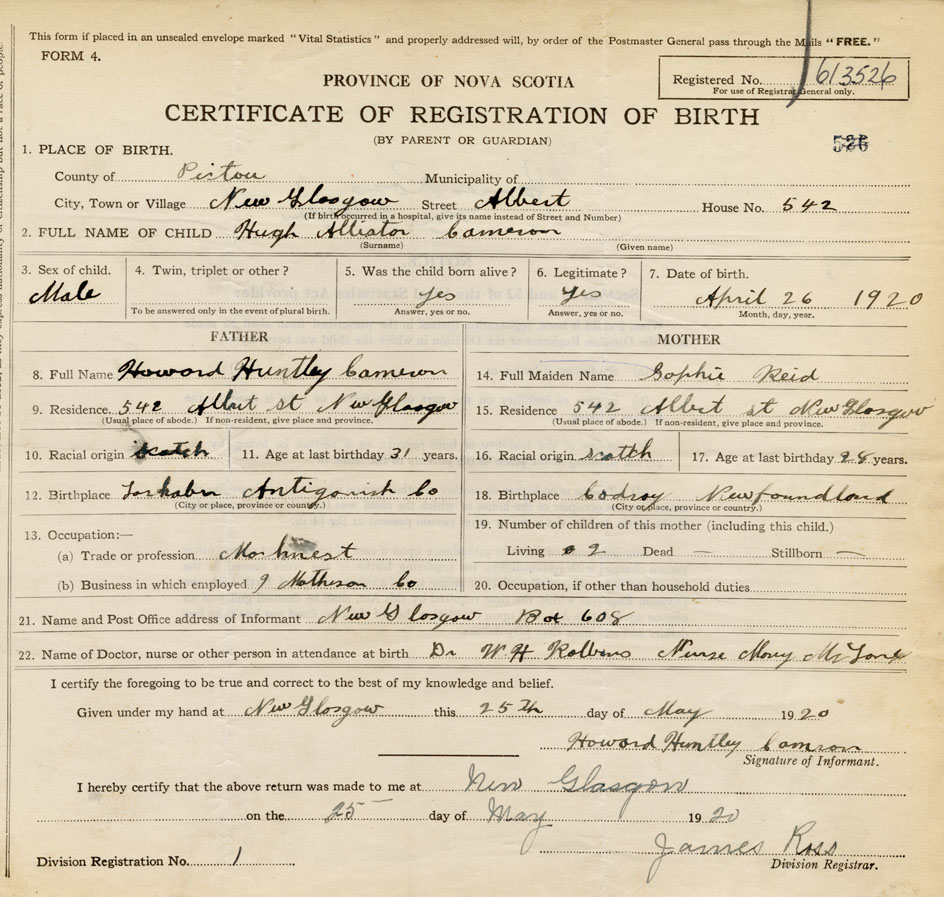 This form if placed in an unsealed envelope marked "Vital Statistics" and properly addressed will, by order of the Postmaster General pass through the Mails "FREE."
FORM 4.
Registered No. 613526
For use of Registrar General only.
PROVINCE OF NOVA SCOTIA
CERTIFICATE OF REGISTRATION OF BIRTH
(BY PARENT OR GUARDIAN)
526
1. PLACE OF BIRTH.
County of Pictou Municipality of
City, Town or Village New Glasgow Street Albert House No. 542
(If birth occurred in a hospital, give its name instead of Street and Number)
2. FULL NAME OF CHILD Hugh Alliator Cameron
(Surname) (Given name)
3. Sex of child. 4. Twin, triplet or other? 5. Was the child born alive? 6. Legitimate? 7. Date of birth.
Male yes yes April 26 1920
To be answered only in the event of plural birth. Answer, yes or no. Answer, yes or no. Month, day, year.
FATHER MOTHER
8. Full Name Howard Huntley Cameron 14. Full Maiden Name Sophie Reid
9. Residence. 542 Albert st New Glasgow 15. Residence 542 Albert st New Glasgow
(Usual place of abode.) If non-resident, give place and province. (Usual place of abode.) If non-resident, give place and province.
10. Racial origin scotch 11. Age at last birthday 31 years. 16. Racial origin scotch 17. Age at last birthday 28 years.
12. Birthplace Lochaber Antigonish Co 18. Birthplace Codroy Newfoundland
(City or place, province or country.) (City or place, province or country.)
13. Occupation:— 19. Number of children of this mother (including this child.)
(a) Trade or profession Living 2 Dead — Stillborn —
(b) Business in which employed Matheson Co 20. Occupation, if other than household duties
21. Name and Post Office address of Informant New Glasgow Box 608
22. Name of Doctor, nurse or other person in attendance at birth Dr W H Robbins Nurse Mary
I certify the foregoing to be true and correct to the best of my knowledge and belief.
Given under my hand at New Glasgow this 25th day of May 1920
Howard Huntley Camron
Signature of Informant.
I hereby certify that the above return was made to me at New Glasgow
on the 25 day of May 1920
James Ross
Division Registration No. 1 Division Registrar.